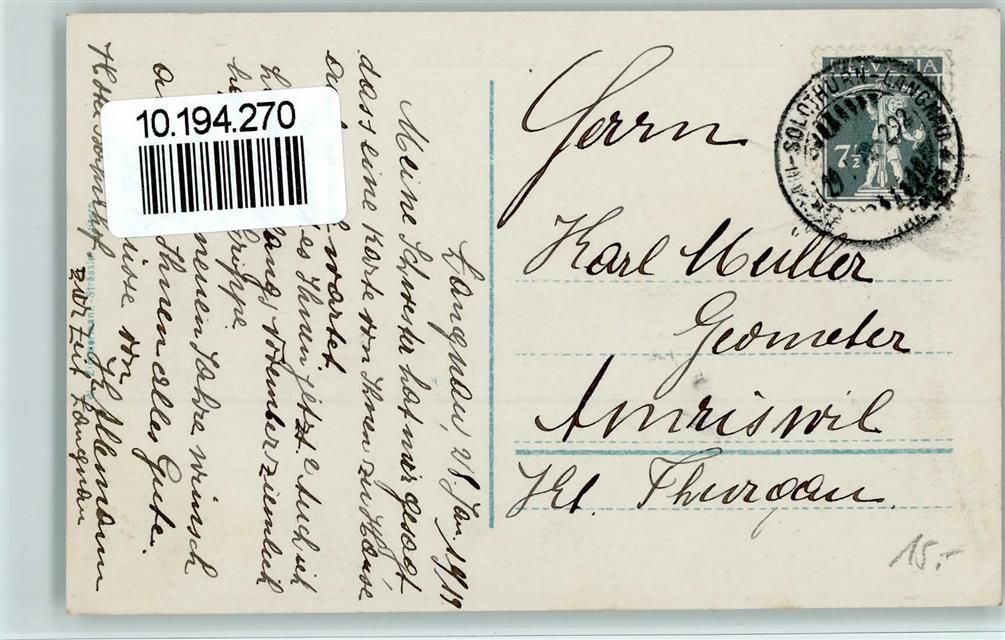 10.194.270
HELVETIA
7½
SOLOTHURN-LANGNAU
Herrn
Karl Müller
Geometer
Amriswil
Kt. Thurgau.
15.-
Langnau, 28. Jan. 1919.
Meine Schwester hat mir gesagt
dass eine Karte von Ihnen zu Hause
wartet.
es Ihnen jetzt? Auch ich
Anfangs November ziemlich
Grippe.
neuen Jahre wünsch
Ihnen alles Gute.
Grüsse von
H. Allemann
zur Zeit Langnau